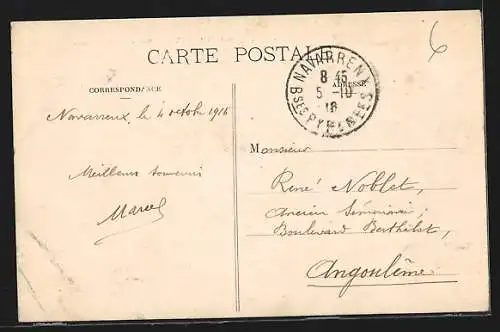 CARTE POSTALE
CORRESPONDANCE
ADRESSE
NAVARRENX
8 45
5 -10
16
BSES PYRÉNÉES
6
Navarrenx, le 4 octobre 1916
Meilleurs souvenirs
Marcel
Monsieur
René Noblet,
Ancien Séminaire,
Boulevard Berthelot,
Angoulême